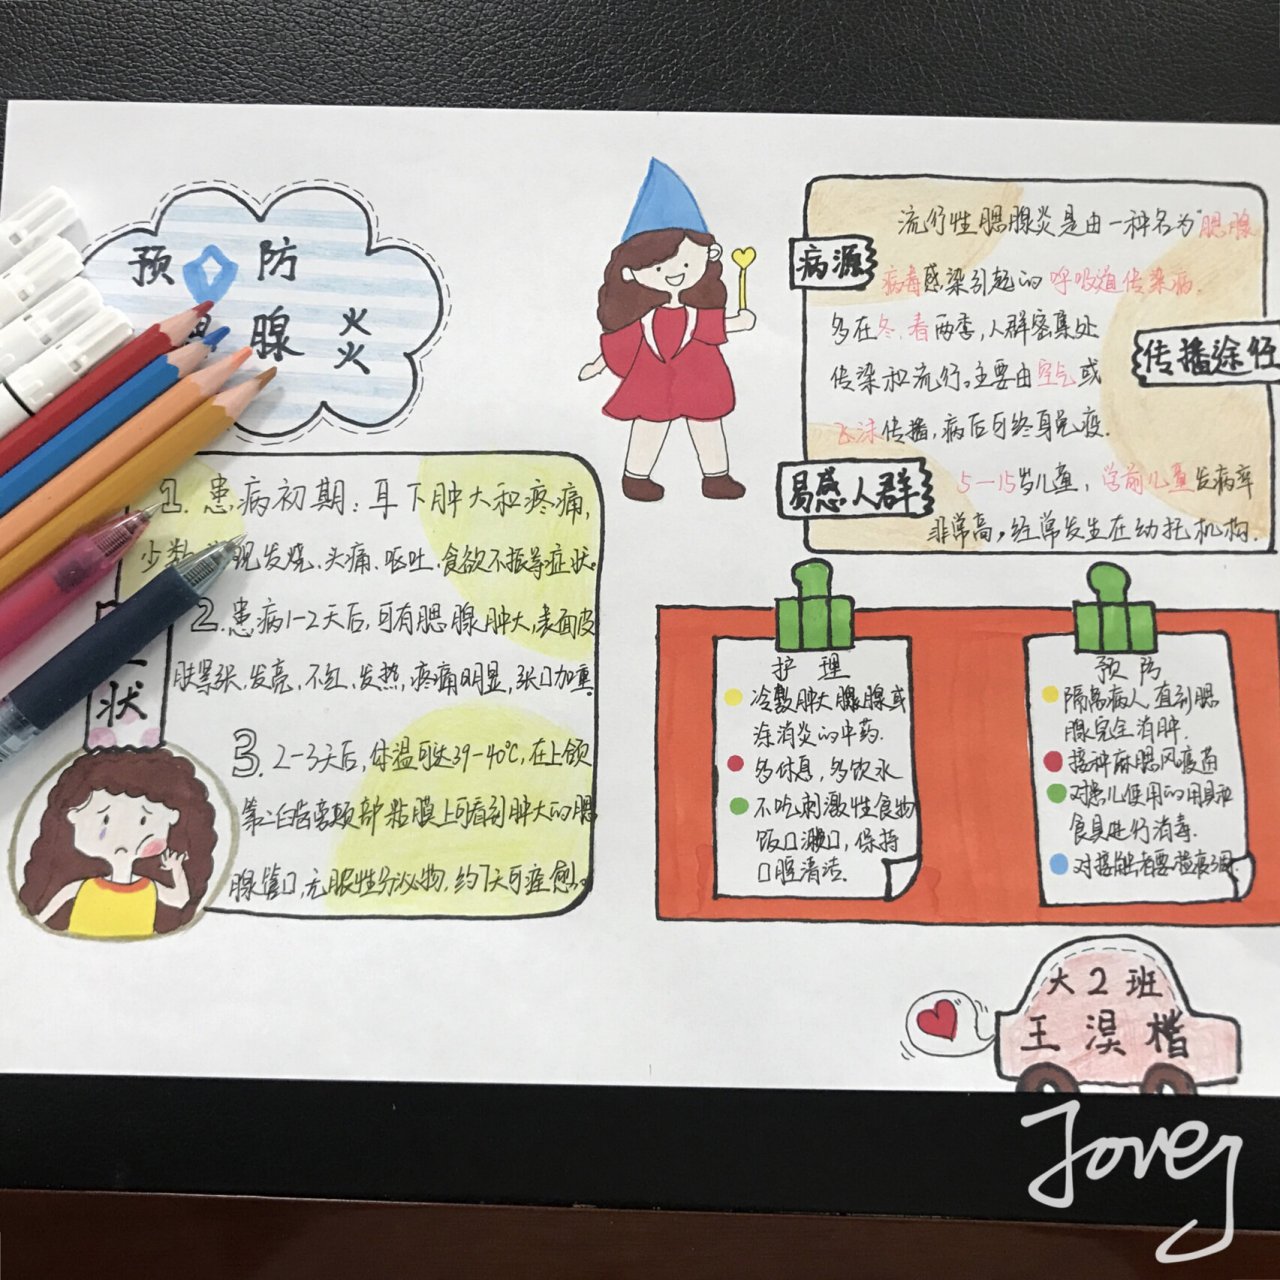 预 防
腺 炎
1. 患病初期:耳下肿大和疼痛,
少数 现发烧、头痛、呕吐、食欲不振等症状。
2. 患病1-2天后,可有腮腺肿大,表面皮
肤紧张,发亮,不红,发热,疼痛明显,张口加重。
3. 2-3天后,体温可达39-40℃,在上颌
第二臼齿旁颊部粘膜上可看到肿大的腮
腺管口,无脓性分泌物,约7天可痊愈。
状
病源
流行性腮腺炎是由一种名为"腮腺
病毒感染引起的呼吸道传染病.
多在冬、春两季,人群密集处
传播途径
传染和流行。主要由空气或
飞沫传播,病后可终身免疫.
易感人群
5-15岁儿童,学前儿童发病率
非常高,经常发生在幼托机构.
护 理
冷敷肿大腺腺或
涂消炎的中药.
多休息,多饮水
不吃刺激性食物
饭口漱口,保持
口腔清洁.
预 防
隔离病人,直到腮
腺完全消肿.
接种麻腮风疫苗
对患儿使用的用具和
食具进行消毒.
对接触者要检疫3周.
大2班
王淏楷
Jovej